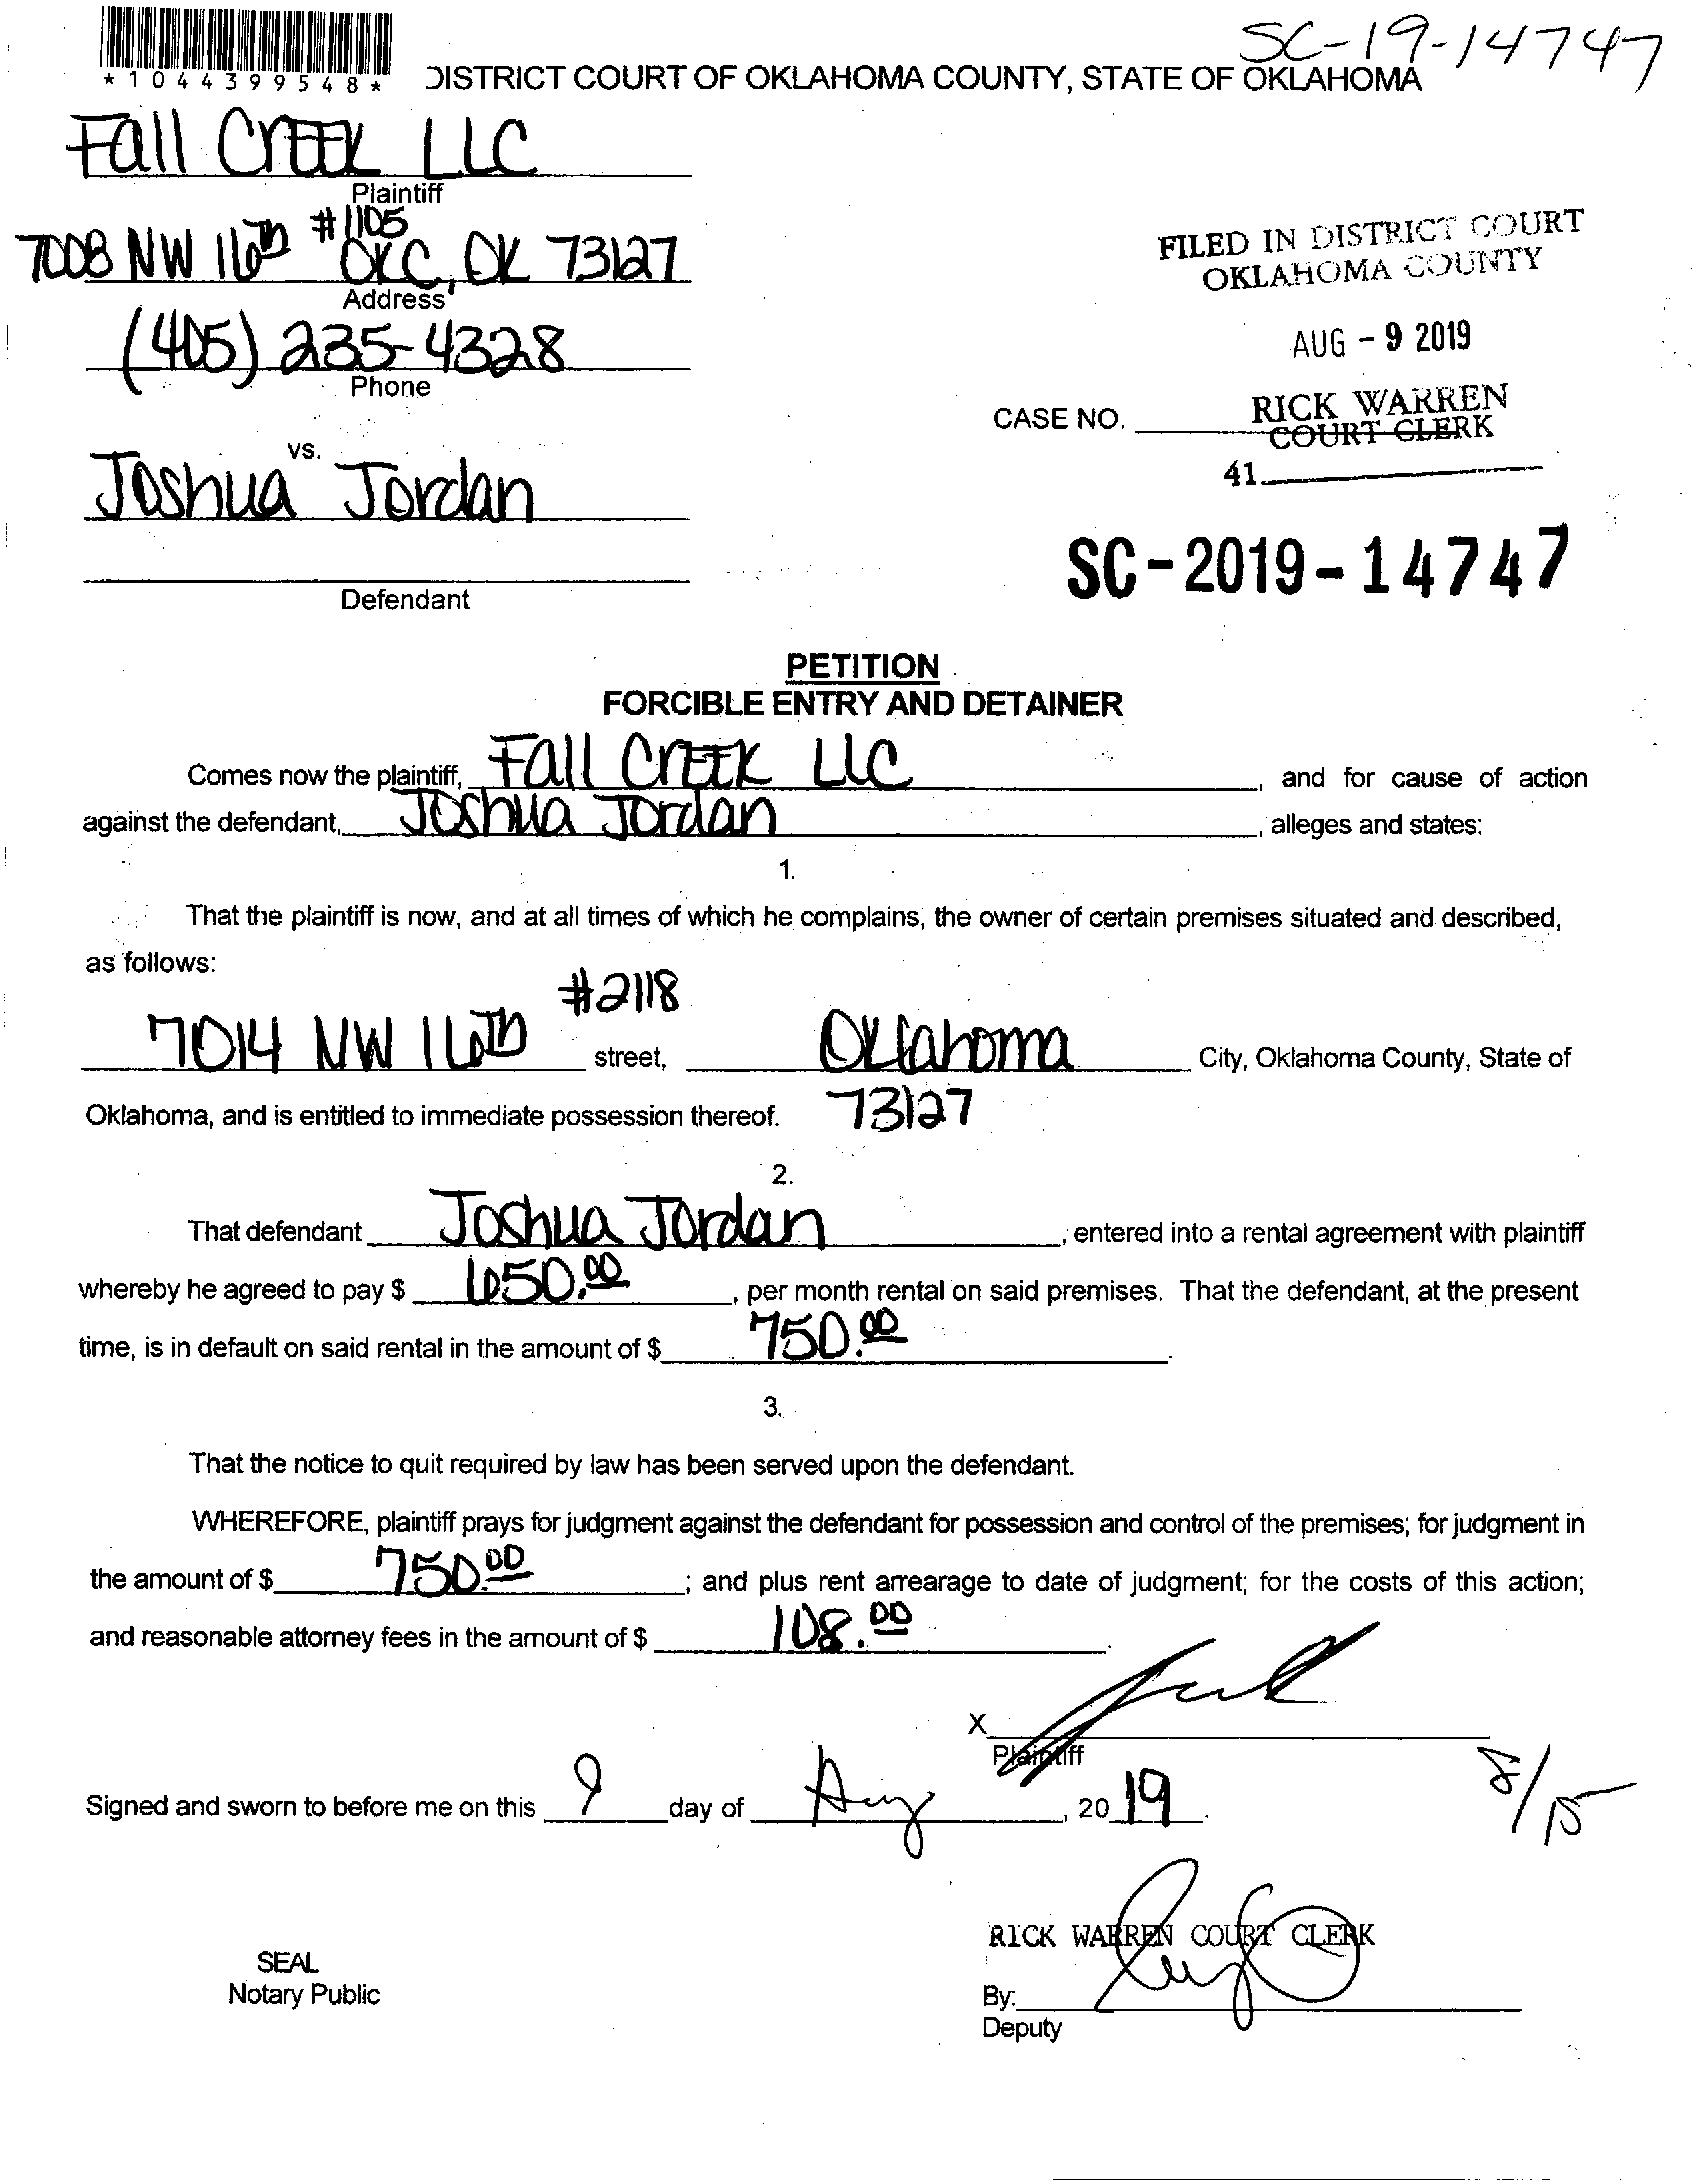 SC-19-14747
*1044399548*
DISTRICT COURT OF OKLAHOMA COUNTY, STATE OF OKLAHOMA
Fall Creek LLC
Plaintiff
7008 NW 16th #1105 OKC, OK 73127
Address
(405) 235-4328
Phone
FILED IN DISTRICT COURT
OKLAHOMA COUNTY
AUG - 9 2019
RICK WARREN
COURT CLERK
CASE NO.
41
vs.
Joshua Jordan
Defendant
SC-2019-14747
PETITION
FORCIBLE ENTRY AND DETAINER
Comes now the plaintiff, Fall Creek LLC, and for cause of action
against the defendant, Joshua Jordan, alleges and states:
1.
That the plaintiff is now, and at all times of which he complains, the owner of certain premises situated and described,
as follows:
#2118
7014 NW 16th street, Oklahoma City, Oklahoma County, State of
Oklahoma, and is entitled to immediate possession thereof. 73127
2.
That defendant Joshua Jordan, entered into a rental agreement with plaintiff
whereby he agreed to pay $ 650.00, per month rental on said premises. That the defendant, at the present
time, is in default on said rental in the amount of $ 750.00.
3.
That the notice to quit required by law has been served upon the defendant.
WHEREFORE, plaintiff prays for judgment against the defendant for possession and control of the premises; for judgment in
the amount of $ 750.00; and plus rent arrearage to date of judgment; for the costs of this action;
and reasonable attorney fees in the amount of $ 108.00.
X
Plaintiff
Signed and sworn to before me on this 9 day of Aug, 2019.
8/15
RICK WARREN COURT CLERK
SEAL
Notary Public
By:
Deputy